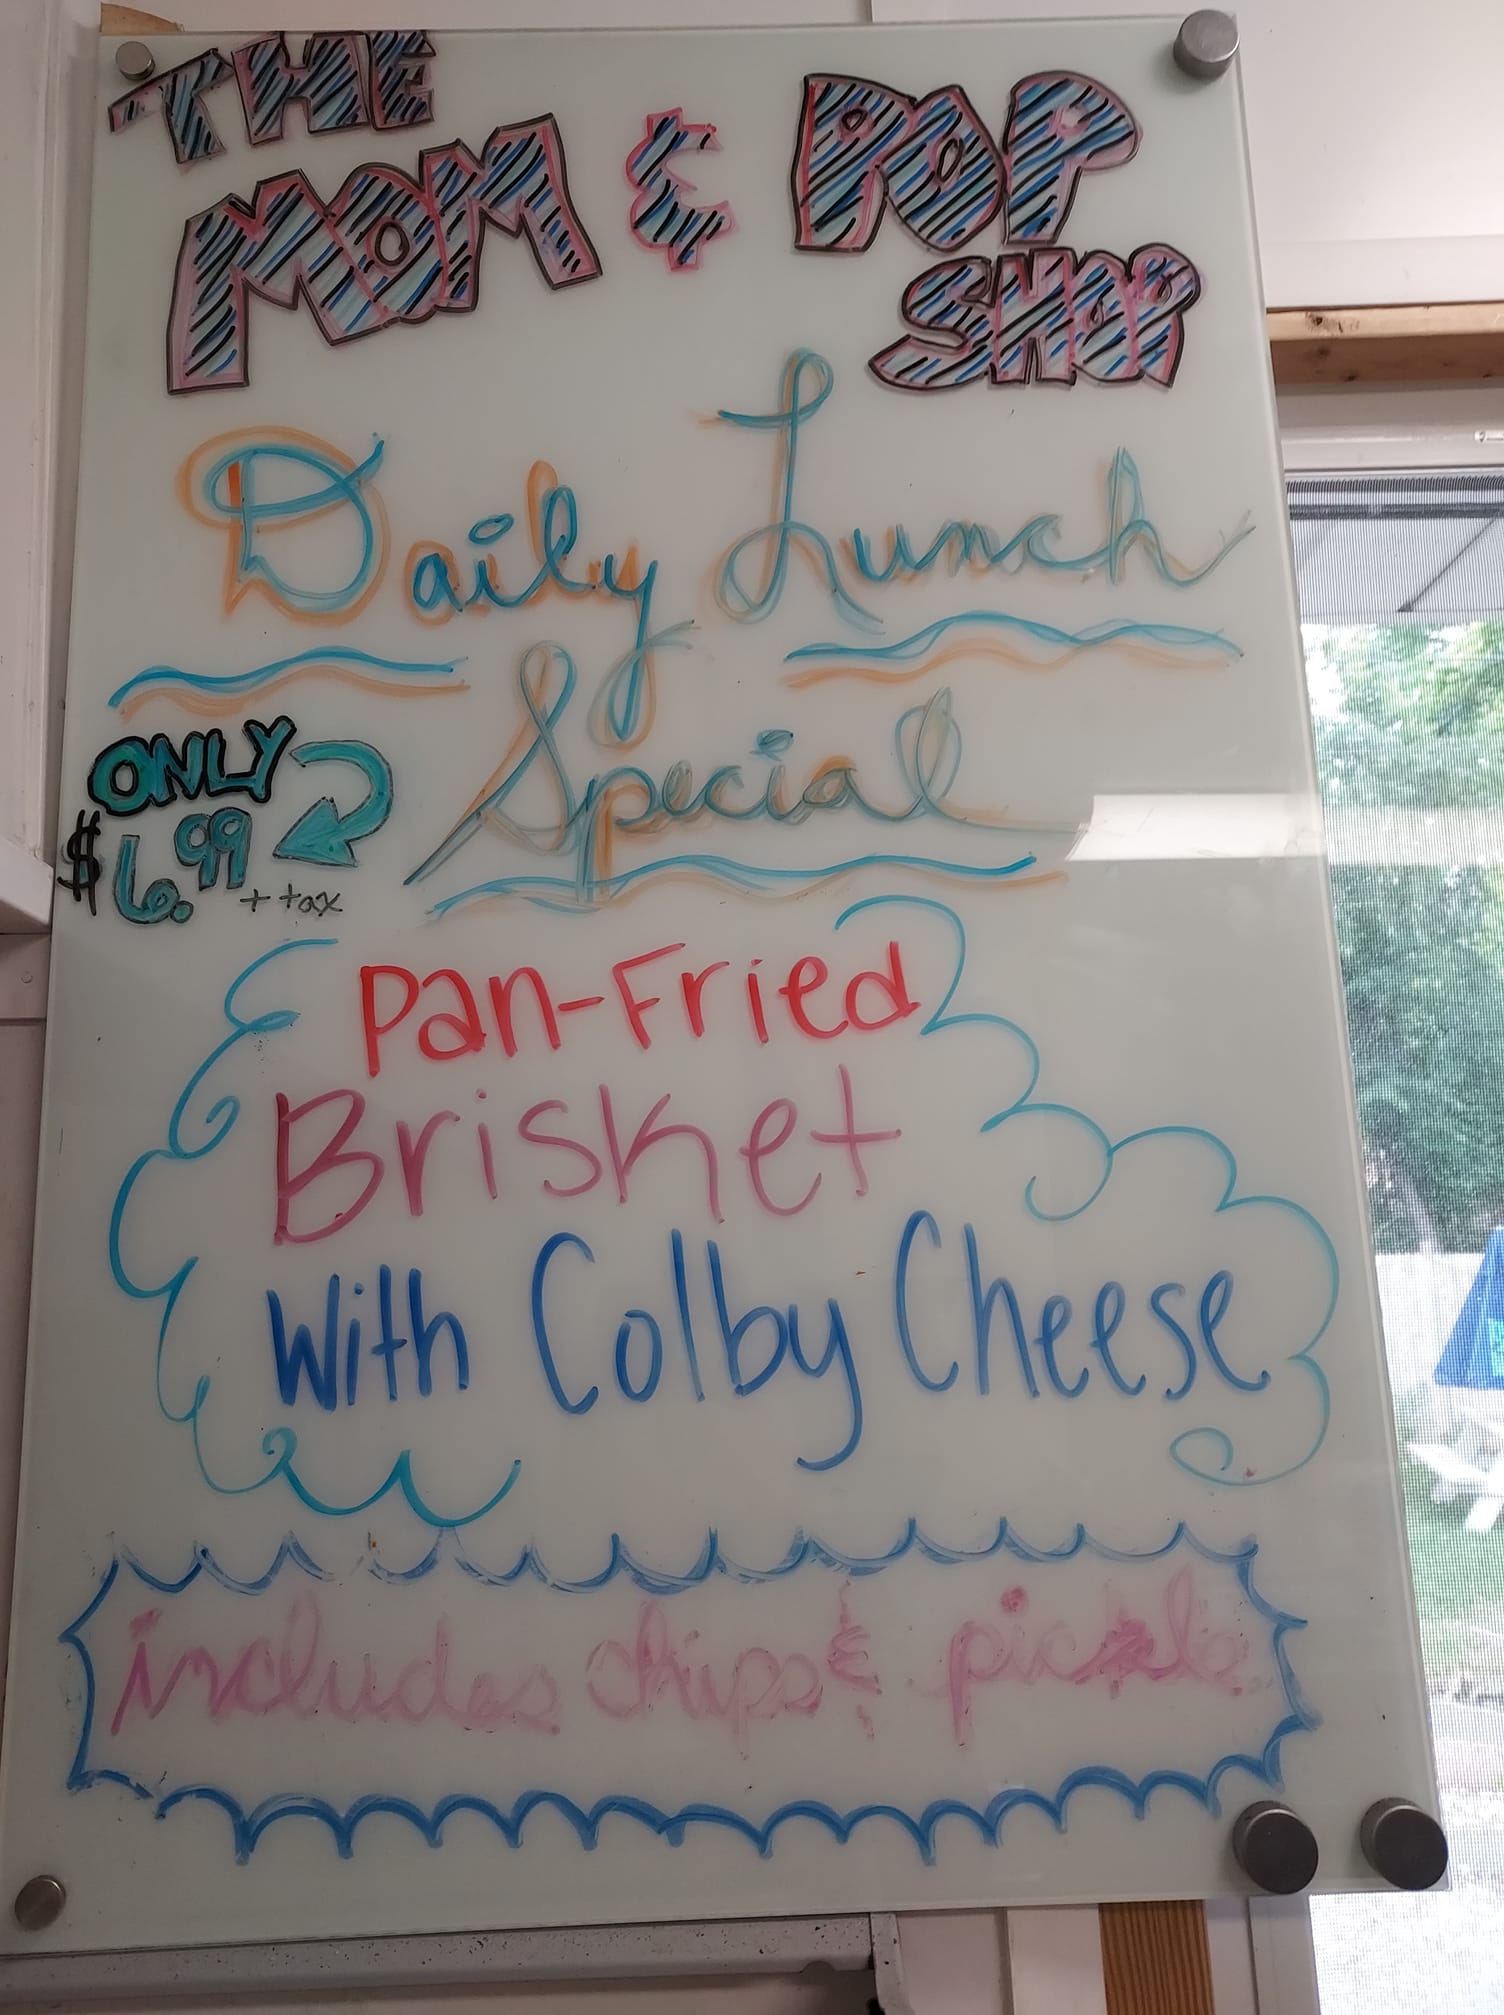 THE
MOM & POP
SHOP
Daily Lunch
Special
ONLY
$6.99 + tax
Pan-Fried
Brisket
With Colby Cheese
includes chips & pickle